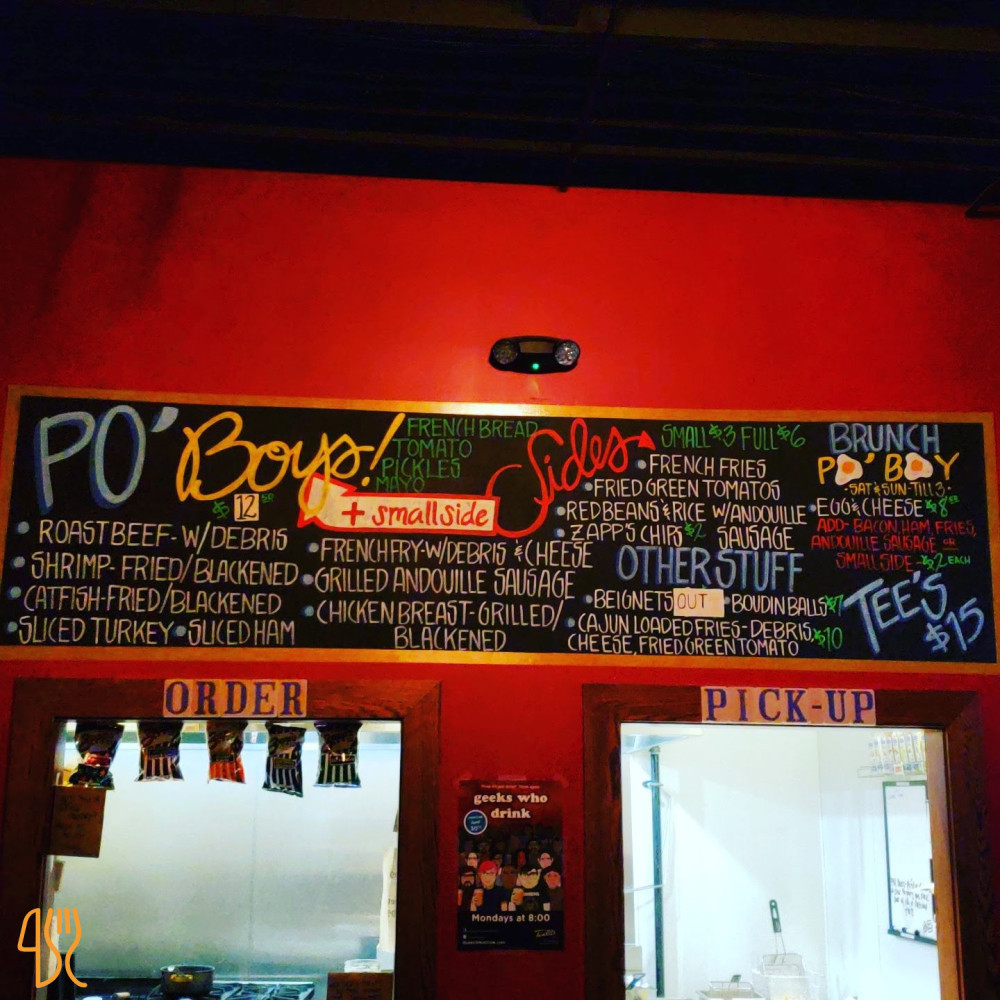 PO' Boys!
$12
FRENCH BREAD
TOMATO
PICKLES
MAYO
+ small side
• ROAST BEEF - W/DEBRIS
• SHRIMP - FRIED/BLACKENED
• CATFISH - FRIED/BLACKENED
• SLICED TURKEY • SLICED HAM
• FRENCH FRY - W/DEBRIS & CHEESE
• GRILLED ANDOUILLE SAUSAGE
• CHICKEN BREAST - GRILLED/
BLACKENED
Sides
SMALL $3 FULL $6
• FRENCH FRIES
• FRIED GREEN TOMATOS
• RED BEANS & RICE W/ANDOUILLE
SAUSAGE
• ZAPP'S CHIPS $2
OTHER STUFF
• BEIGNETS OUT • BOUDIN BALLS $7
• CAJUN LOADED FRIES - DEBRIS,
CHEESE, FRIED GREEN TOMATO $10
BRUNCH
PO' BOY
- SAT & SUN - TILL 3 -
• EGG & CHEESE $8
ADD - BACON, HAM, FRIES,
ANDOUILLE SAUSAGE OR
SMALL SIDE - $2 EACH
TEE'S
$15
ORDER
PICK-UP
geeks who
drink
Mondays at 8:00